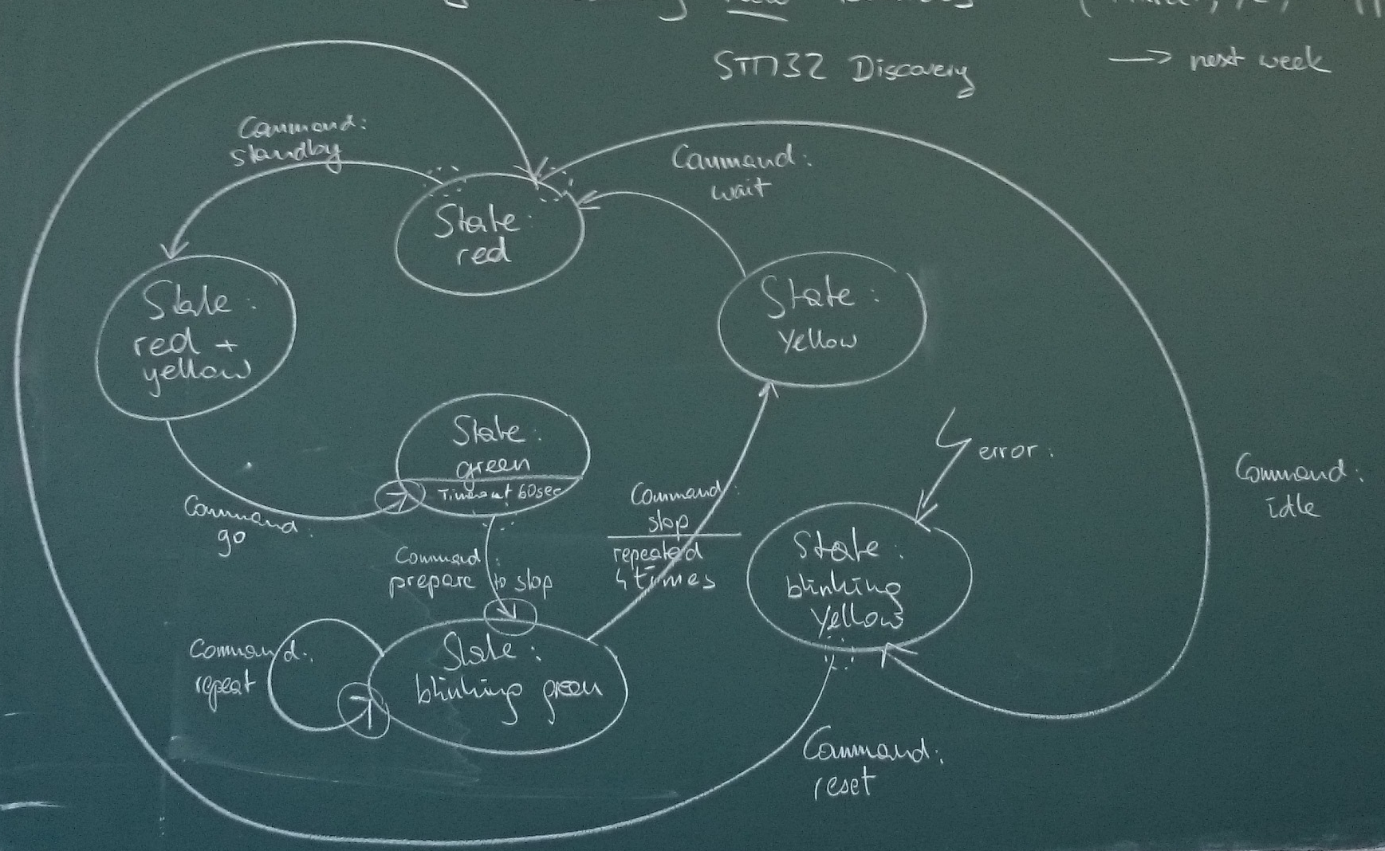 STM32 Discovery
→ next week
Command:
standby
Command:
wait
State:
red
State:
red +
yellow
State:
yellow
State:
green
Timeout 60sec
error:
Command:
idle
Command:
go
Command:
stop
repeated
4 times
Command:
prepare to stop
State:
blinking
yellow
Command:
repeat
State:
blinking green
Command:
reset